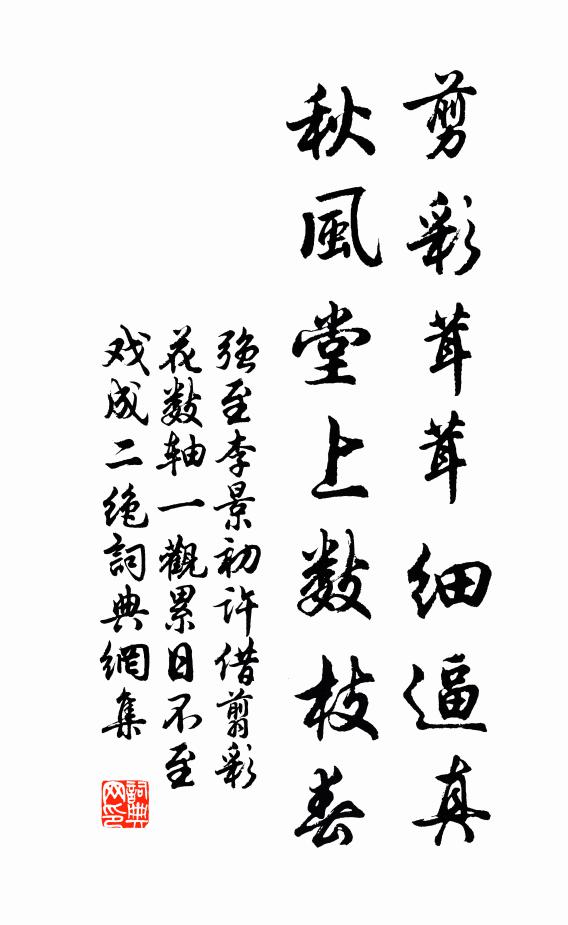 剪彩茸茸细逼真
秋風堂上数枝春
强至李景初许借剪彩
花数轴一觀累日不至
戏成二绝詞典網集
詞典
网印